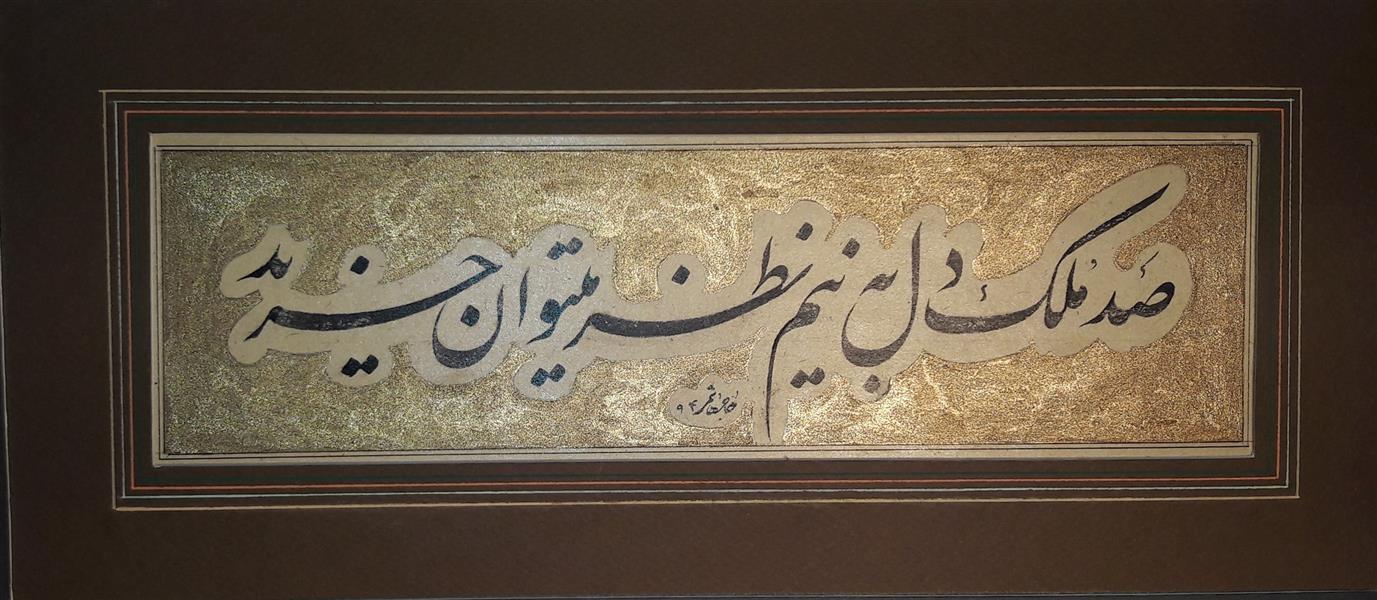 صد مُلک دل به نیم نظر میتوان خرید
۹۴